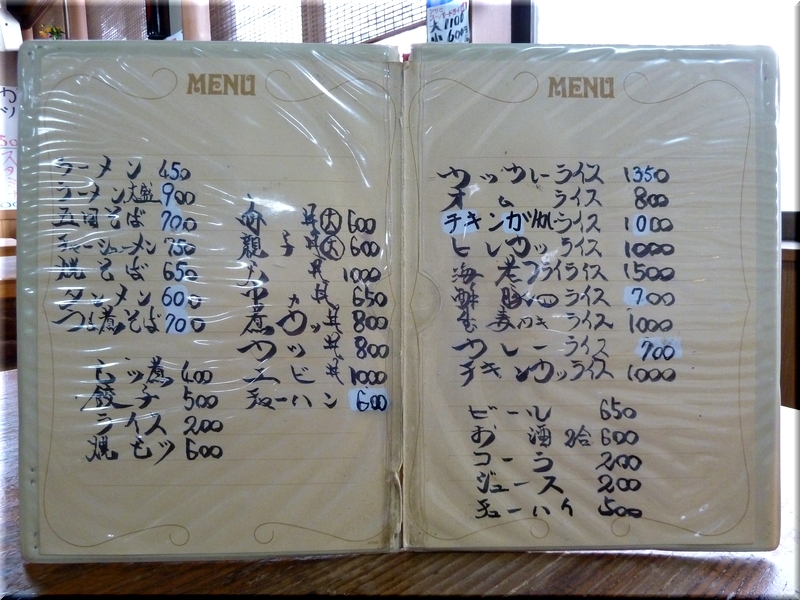 MENU
ラーメン 450
ラーメン大盛 900
五目そば 700
チャーシューメン 750
焼そば 650
タンメン 600
つけそば 700
モツ煮 400
餃子 500
ライス 200
焼モツ 600
丼(大) 600
親子丼(大) 600
丼 1000
丼 650
煮カツ丼 800
カツ丼 800
エビ丼 1000
チャーハン 600
MENU
カツカレーライス 1350
オムライス 800
チキンカツカレーライス 1000
ヒレカツライス 1000
海老フライライス 1500
ライス 700
生姜焼ライス 1000
カレーライス 700
チキンカツライス 1000
ビール 650
お酒 2合 600
コーラ 200
ジュース 200
チューハイ 500
大 1100
小 600